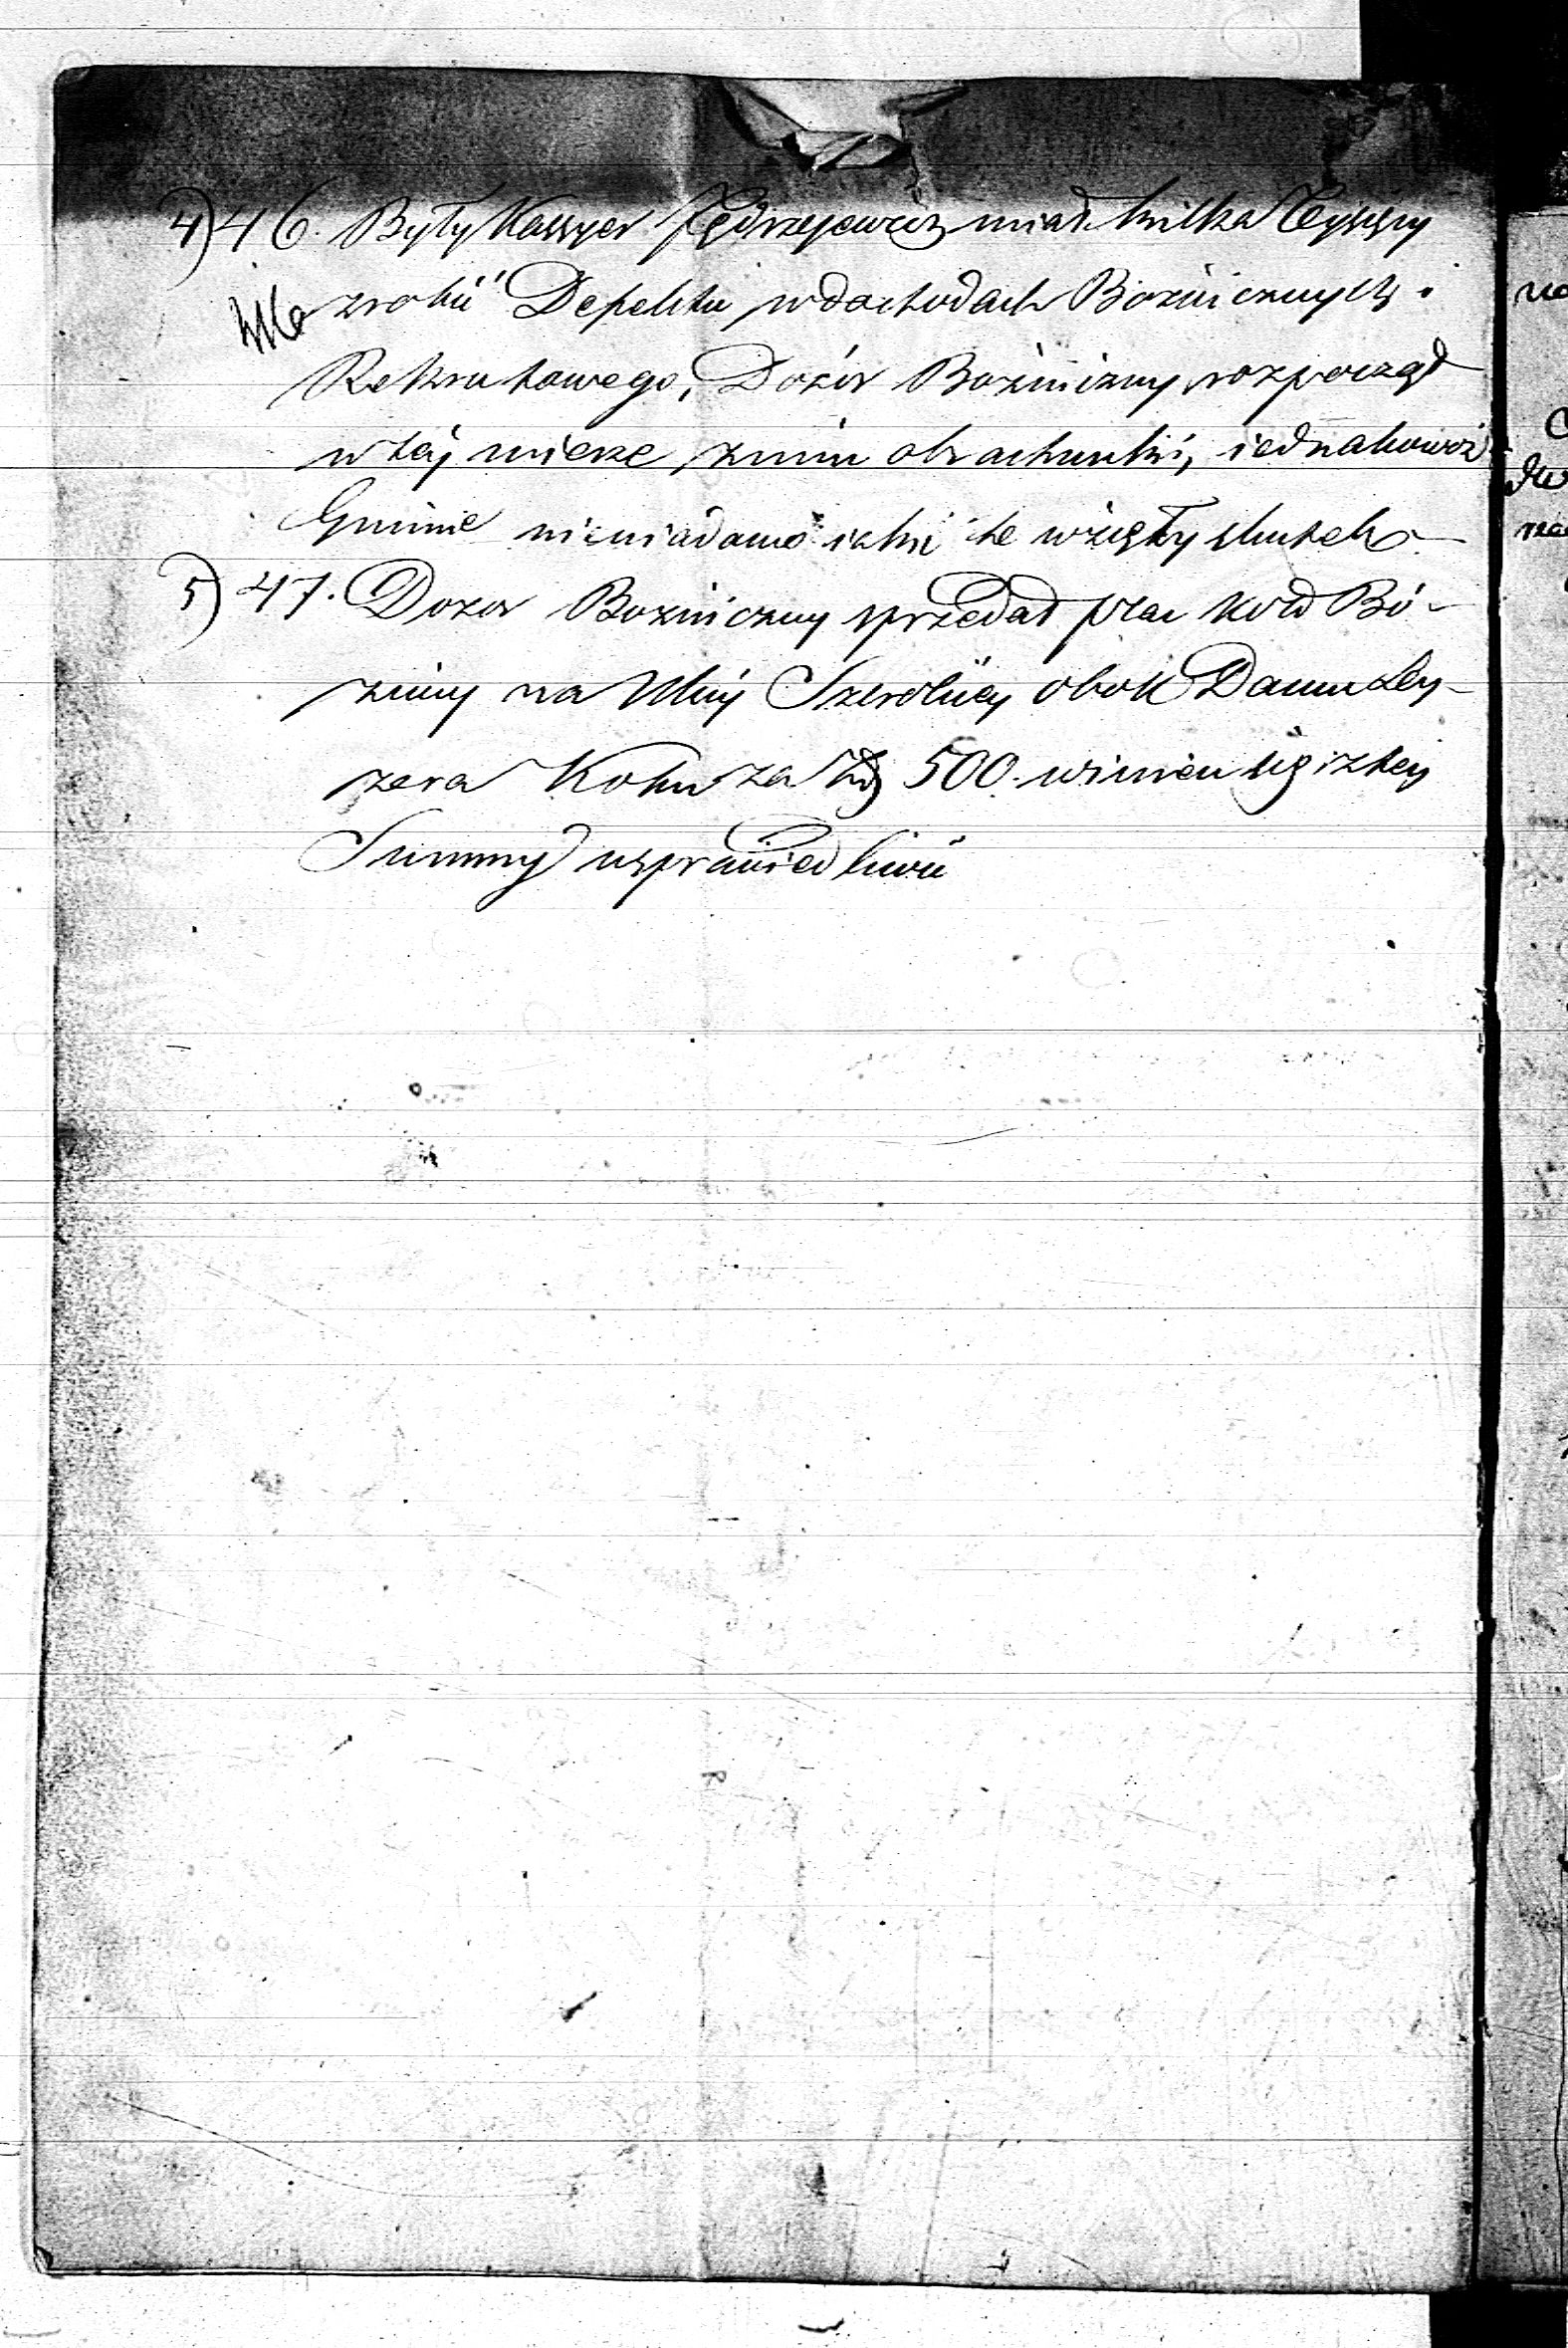 4) 46. Były Kassyer Jędrzejewicz miał kilka Tysięcy
zrobić Defektu w dochodach Bożnicznych i
Rekrutowego, Dozór Bożniczny rozpoczął
w tej mierze z nim obrachunki, iednakowoż
Gminie niewiadomo iaki te wzięły skutek
5) 47. Dozor Bozniczny sprzedał plac koło Bó-
znicy na Ulicy Szerokiey obok Domu Ley-
zera Kohn za 500. winien się iz tey
Summy usprawiedliwić